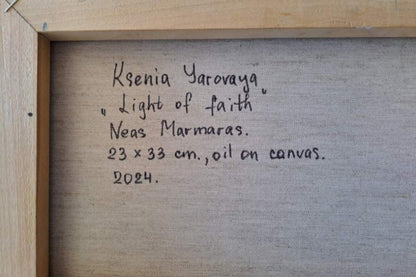 Ksenia Yarovaya
„Light of faith"
Neas Marmaras.
23 x 33 cm., oil on canvas.
2024.